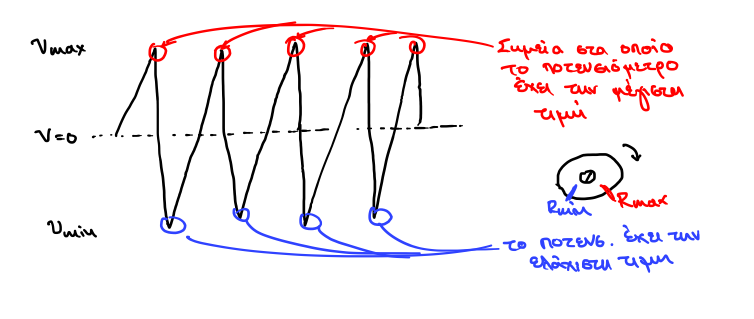 Vmax
Σημεία στα οποίο
το ποτενσιόμετρο
έχει την μέγιστη
τιμή
V=0
Rmin
Rmax
Vmin
το ποτενσ. έχει την
ελάχιστη τιμη